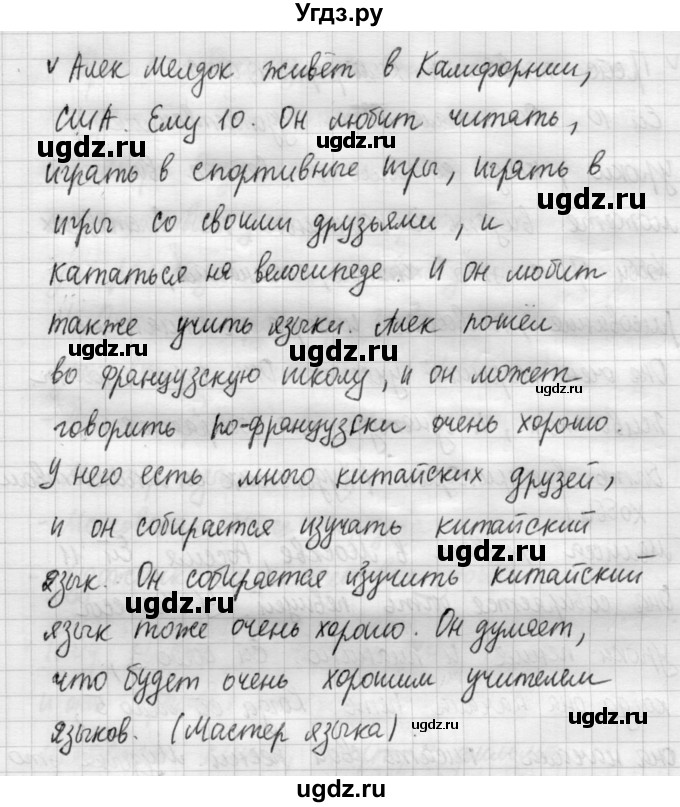 Угдз.ру
v Алек Мелдок живёт в Калифорнии,
США. Ему 10. Он любит читать,
ugdz.ru
ugdz.ru
играть в спортивные игры, играть в
ugdz.ru
игры со своими друзьями, и
ugdz.ru
кататься на велосипеде. И он любит
также учить языки. Алек пошёл
ugdz.ru
ugdz.ru
во французскую школу, и он может
ugdz.ru
говорить по-французски очень хорошо.
ugdz.ru
У него есть много китайских друзей,
и он собирается изучать китайский
ugdz.ru
язык. Он собирается изучить китайский
ugdz.ru
язык тоже очень хорошо. Он думает,
ugdz.ru
что будет очень хорошим учителем
языков. (Мастер языка)
ugdz.ru
ugdz.ru
ugdz.ru